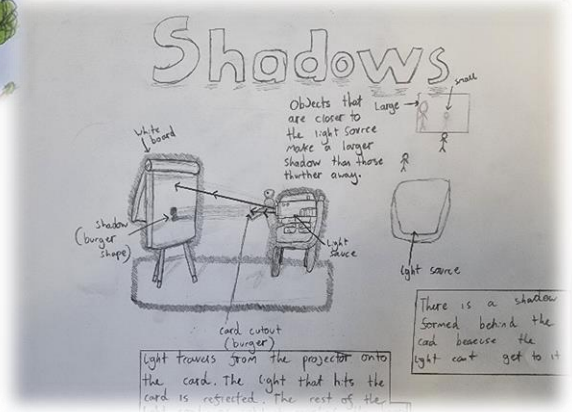 Shadows
Objects that
are closer to
the light source
make a larger
shadow than those
thurther away.
Large
small
white
board
shadow
(burger
shape)
light
sauce
card cutout
(burger)
light source
There is a shadow
formed behind the
card because the
light can't get to it
light travels from the projector onto
the card. The light that hits the
card is reflected. The rest of the